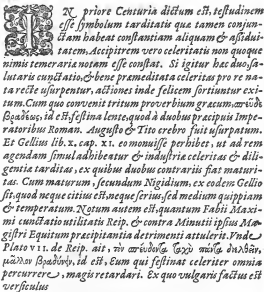 IN priore Centuria dictum est, testudinem
esse symbolum tarditatis quæ tamen conjun-
ctam habeat constantiam aliquam & assidui-
tatem, Accipitrem vero celeritatis non quoque
nimis temerariæ notam esse constat. Si igitur hæc duo, sa-
lutaris cunctatio, & bene præmeditata celeritas pro re na-
ta recte usurpentur, actiones inde felicem sortiuntur exi-
tum. Cum quo convenit tritum proverbium græcum,
βραδέως, id est, festina lente, quod à duobus præcipuis Impe-
ratoribus Roman. Augusto & Tito crebro fuit usurpatum.
Et Gellius lib. x. cap. xi. eo monuisse perhibet, ut ad rem
agendam simul adhibeatur & industriæ celeritas & dili-
gentiæ tarditas, ex quibus duobus contrariis fiat maturi-
tas. Cum maturum, secundum Nigidium, ex eodem Gellio
sit, quod neque citius est, neque serius, sed medium quippiam
& temperatum. Notum autem est, quantum Fabii Maxi-
mi cunctatio utilitatis Reip. & contra Minutii ipsius Ma-
gistri Equitum præcipitantia detrimenti attulerit. Unde
Plato VII. de Reip. ait,
μᾶλλον βραδύνειν, id est, Eum qui festinat celeriter omnia
percurrere, magis retardari. Ex quo vulgaris factus est
versiculus